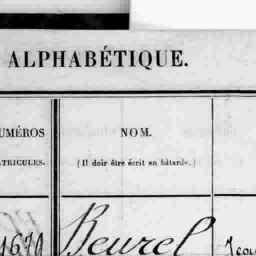 ALPHABÉTIQUE.
UMÉROS NOM.
ATRICULES. (Il doir être écrit en bâtarde.)
1671 Beurel Jean